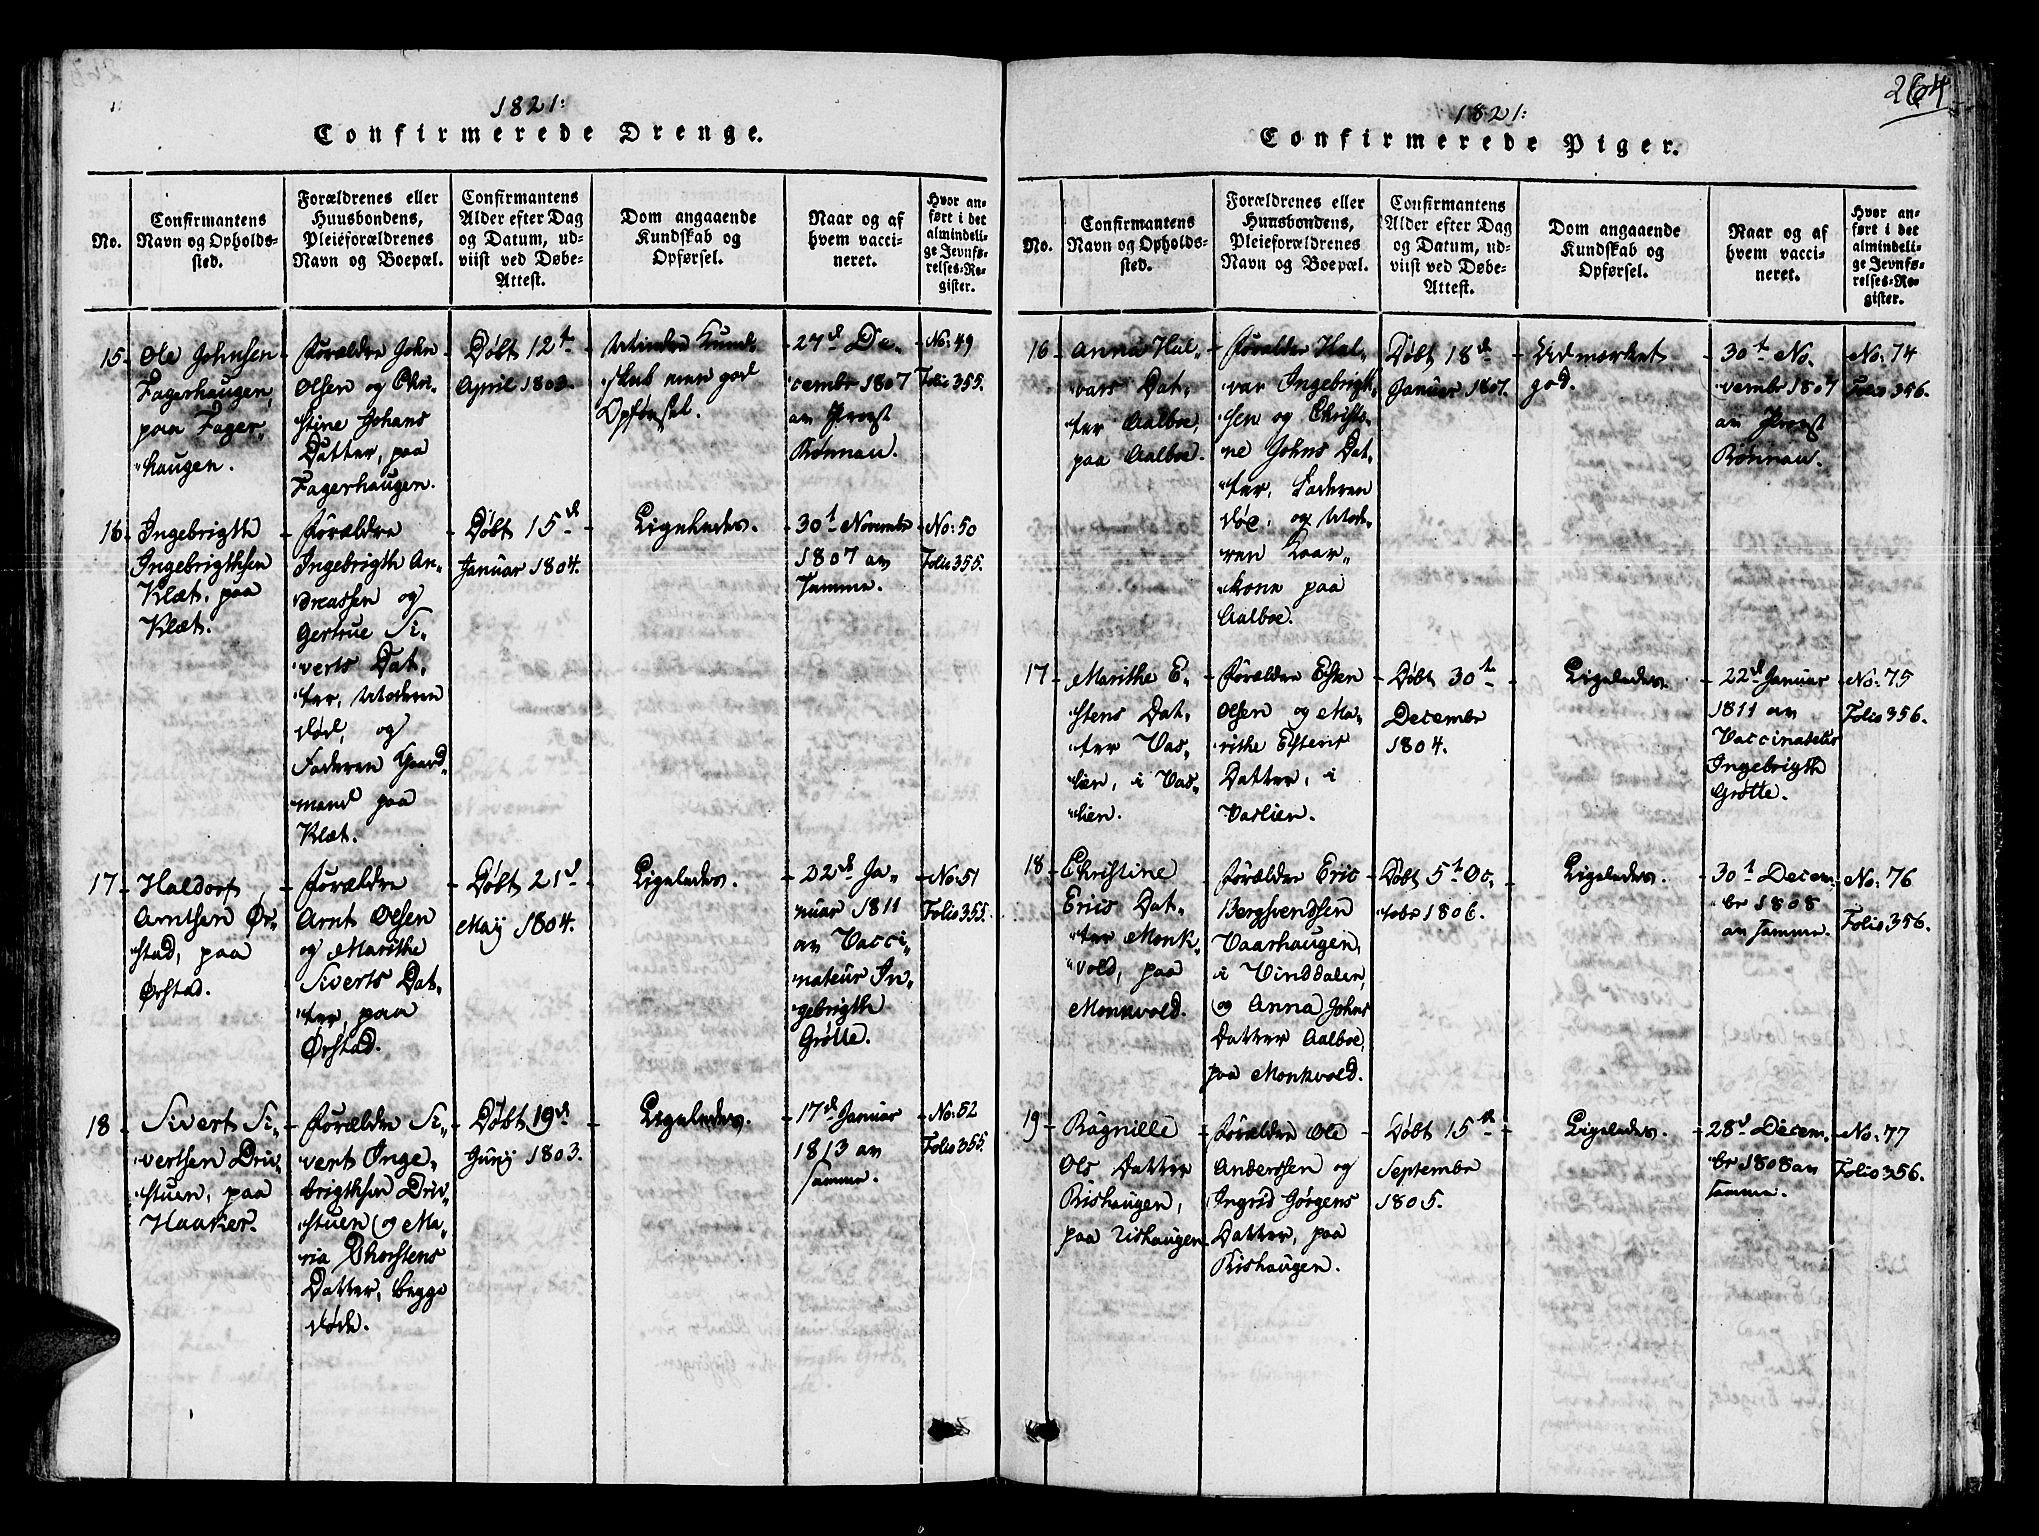 1821:
Confirmerede Drenge.
No.
Confirmantens
Navn og Opholds-
sted.
Forældrenes eller
Huusbondens,
Pleieforældrenes
Navn og Boepæl.
Confirmantens
Alder efter Dag
og Datum, ud-
viist ved Døbe-
Attest.
Dom angaaende
Kundskab og
Opførsel.
Naar og af
hvem vacci-
neret.
Hvor an-
ført i det
almindeli-
ge Jevnfø-
relses-Re-
gister.
15
Ole Johnsen
Fagerhaugen,
paa Fager-
haugen.
Forældre John
Olsen og Chri-
stine Johans
Datter, paa
Fagerhaugen.
Døbt 12t
April 1803.
Mindre Kund-
skab men god
Opførsel.
27d De-
cembr 1807
av Provst
Rønnau.
No: 49
Folio 355.
16
Ingebrigth
Ingebrigthsen
Klæt, paa
Klæt.
Forældre
Ingebrigth An-
dreassen og
Gertrue Si-
verts Dat-
ter, Moderen
død, og
Faderen Gaard-
mand paa
Klæt.
Døbt 15d
Januar 1804.
Ligeledes.
30t Novembr
1807 av
Samme.
No: 50
Folio 355.
17
Haldorf
Arntsen Ør-
stad, paa
Ørstad.
Forældre
Arnt Olsen
og Marithe
Siverts Dat-
ter, paa
Ørstad.
Døbt 21d
Maij 1804.
Ligeledes.
22d Ja-
nuar 1811
av Vacci-
nateur In-
gebrigth
Grøtte.
No: 51
Folio 355.
18
Sivert Si-
vertsen Driv-
stuen, paa
Haaker.
Forældre Si-
vert Inge-
brigthsen Driv-
stuen og Ma-
ria Thorstens
Datter, begge
døde.
Døbt 19d
Junij 1803.
Ligeledes.
17d Januar
1813 av
Samme.
No: 52
Folio 355.
264
1821:
Confirmerede Piger.
No.
Confirmantens
Navn og Opholds-
sted.
Forældrenes eller
Huusbondens,
Pleieforældrenes
Navn og Boepæl.
Confirmantens
Alder efter Dag
og Datum, ud-
viist ved Døbe-
Attest.
Dom angaaende
Kundskab og
Opførsel.
Naar og af
hvem vacci-
neret.
Hvor an-
ført i det
almindeli-
ge Jevnfø-
relses-Re-
gister.
16
Anna Hal-
vars Dat-
ter Aalboe,
paa Aalboe.
Forældre Hal-
var Ingebrigth-
sen og Christi-
ne Johns Dat-
ter, Faderen
død, og Mode-
ren Gaar-
kone paa
Aalboe.
Døbt 18d
Januar 1807.
Udmærket
god.
30t No-
vembr 1807
av Provst
Rønnau.
No: 74
Folio 356.
17
Marithe E-
stens Dat-
ter Vas-
lien, i Vas-
lien.
Forældre Esten
Olsen og Ma-
rithe Estens
Datter, i
Vaslien.
Døbt 30t
Decembr
1804.
Ligeledes.
22d Januar
1811 av
Ingebrigth
Grøtte.
No: 75
Folio 356.
18
Christine
Erics Dat-
ter Monk-
vold, paa
Monkvold.
Forældre Eric
Bergsvendsen
Vaarhaugen,
i Vinddalen,
og Anna Johns
Datter Aalboe,
paa Monkvold.
Døbt 5t Oc-
tobr 1806.
Ligeledes.
30t Decem-
br 1808
av Samme.
No: 76
Folio 356.
19
Ragnille
Ols Datter
Rishaugen,
paa Rishaugen
Forældre Ole
Anderssen og
Ingrid Jørgens
Datter, paa
Rishaugen.
Døbt 15d
Septembr
1805.
Ligeledes.
28d Decem-
br 1808 av
Samme.
No: 77
Folio 356.